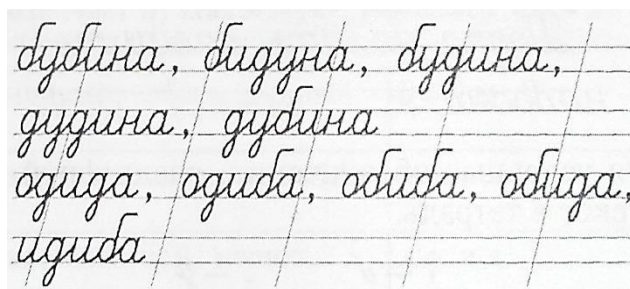 бубина, бидуна, будина,
дудина, дубина
одида, одиба, обиба, обида,
идиба